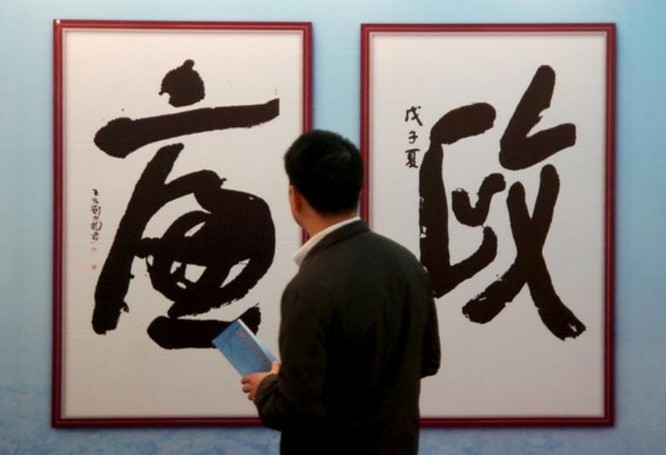 政
戊子夏
廉